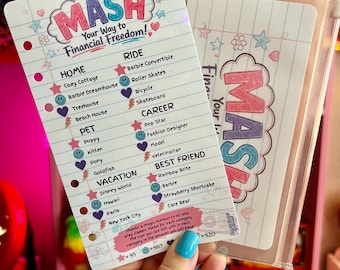 MASH
Your Way to
Financial Freedom!
HOME
Cozy Cottage
Barbie Dreamhouse
Treehouse
Beach House
RIDE
Barbie Convertible
Roller Skates
Bicycle
Skateboard
PET
Puppy
Kitten
Pony
Goldfish
CAREER
Pop Star
Fashion Designer
Model
Veterinarian
VACATION
Disney World
Hawaii
Paris
New York City
BEST FRIEND
Rainbow Brite
Barbie
Strawberry Shortcake
Care Bear
MASH